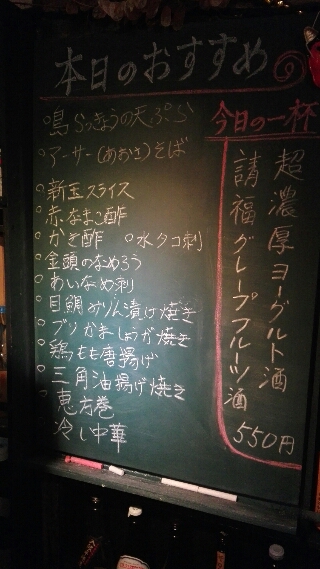 本日のおすすめ
島らっきょうの天ぷら
アーサー(あおさ)そば
新玉スライス
赤なまこ酢
かき酢 水タコ刺
金頭のなめろう
あいなめ刺
目鯛みりん漬け焼き
ブリかましょうが焼き
鶏もも唐揚げ
三角油揚げ焼き
恵方巻
冷し中華
今日の一杯
超濃厚ヨーグルト酒
請福グレープフルーツ酒
550円